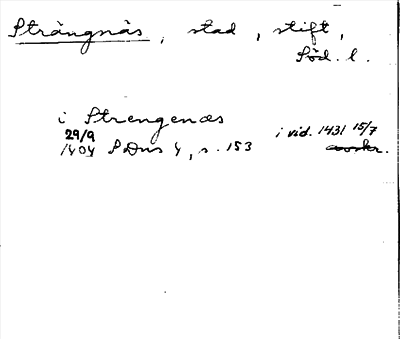 Strängnäs, stad, stift,
Söd. l.
i Strengenæs
29/9
1404 SDns 1, s. 153
i vid. 1431 15/7
avskr.